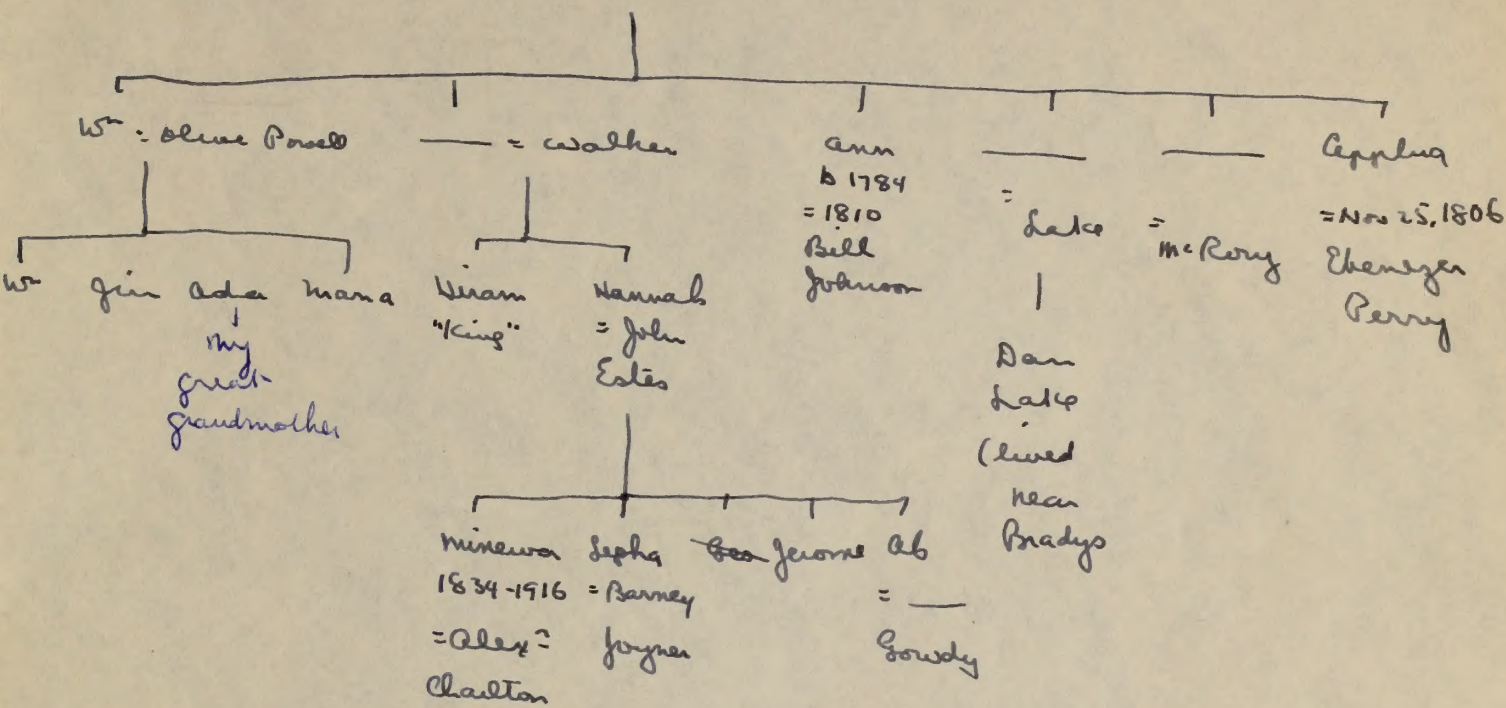 Wm = Olive Powell
___ = Walker
Ann
b 1784
= 1810
Bill
Johnson
___
= Lake
___
= McRory
Apphia
= Nov 25, 1806
Ebenezer
Perry
Wm Jim Ada Maria
my
great-
grandmother
Hiram
"King"
Hannah
= John
Estes
Dan
Lake
(lived
near
Bradys
Minerva
1834-1916
= Alexr
Charlton
Lepha
= Barney
Joyner
Geo
Jerome
Ab
= ___
Gowdy